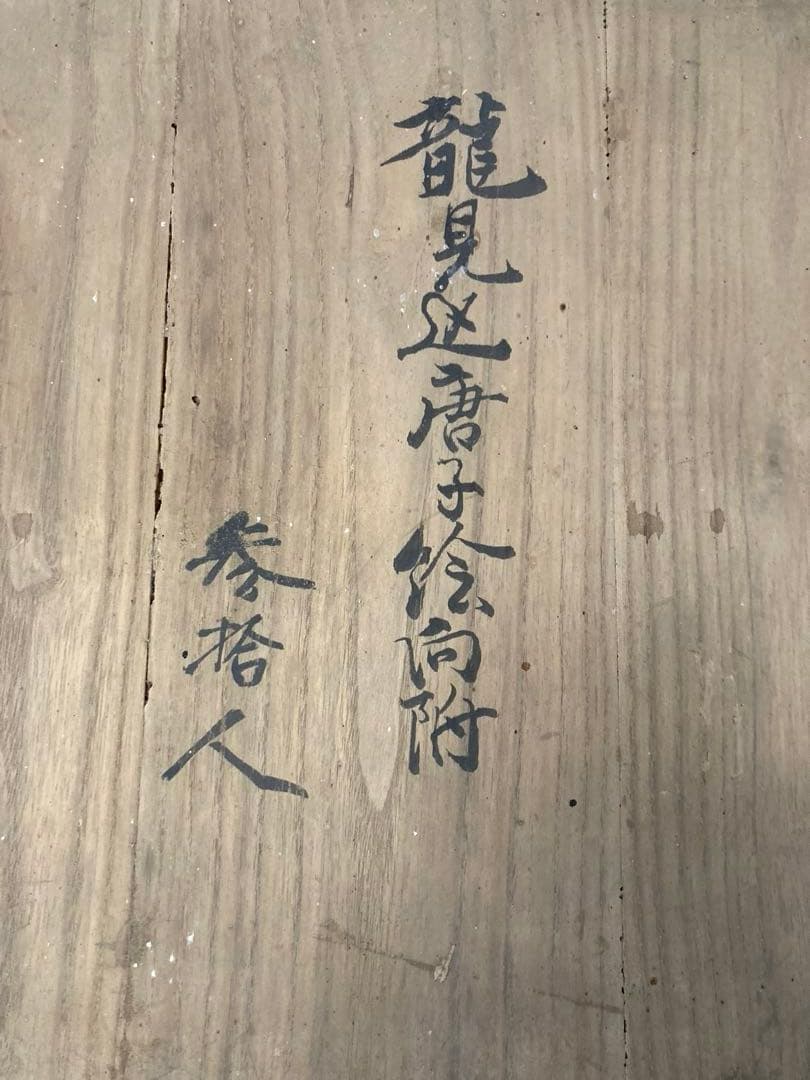 龍見込唐子絵向附
参拾人